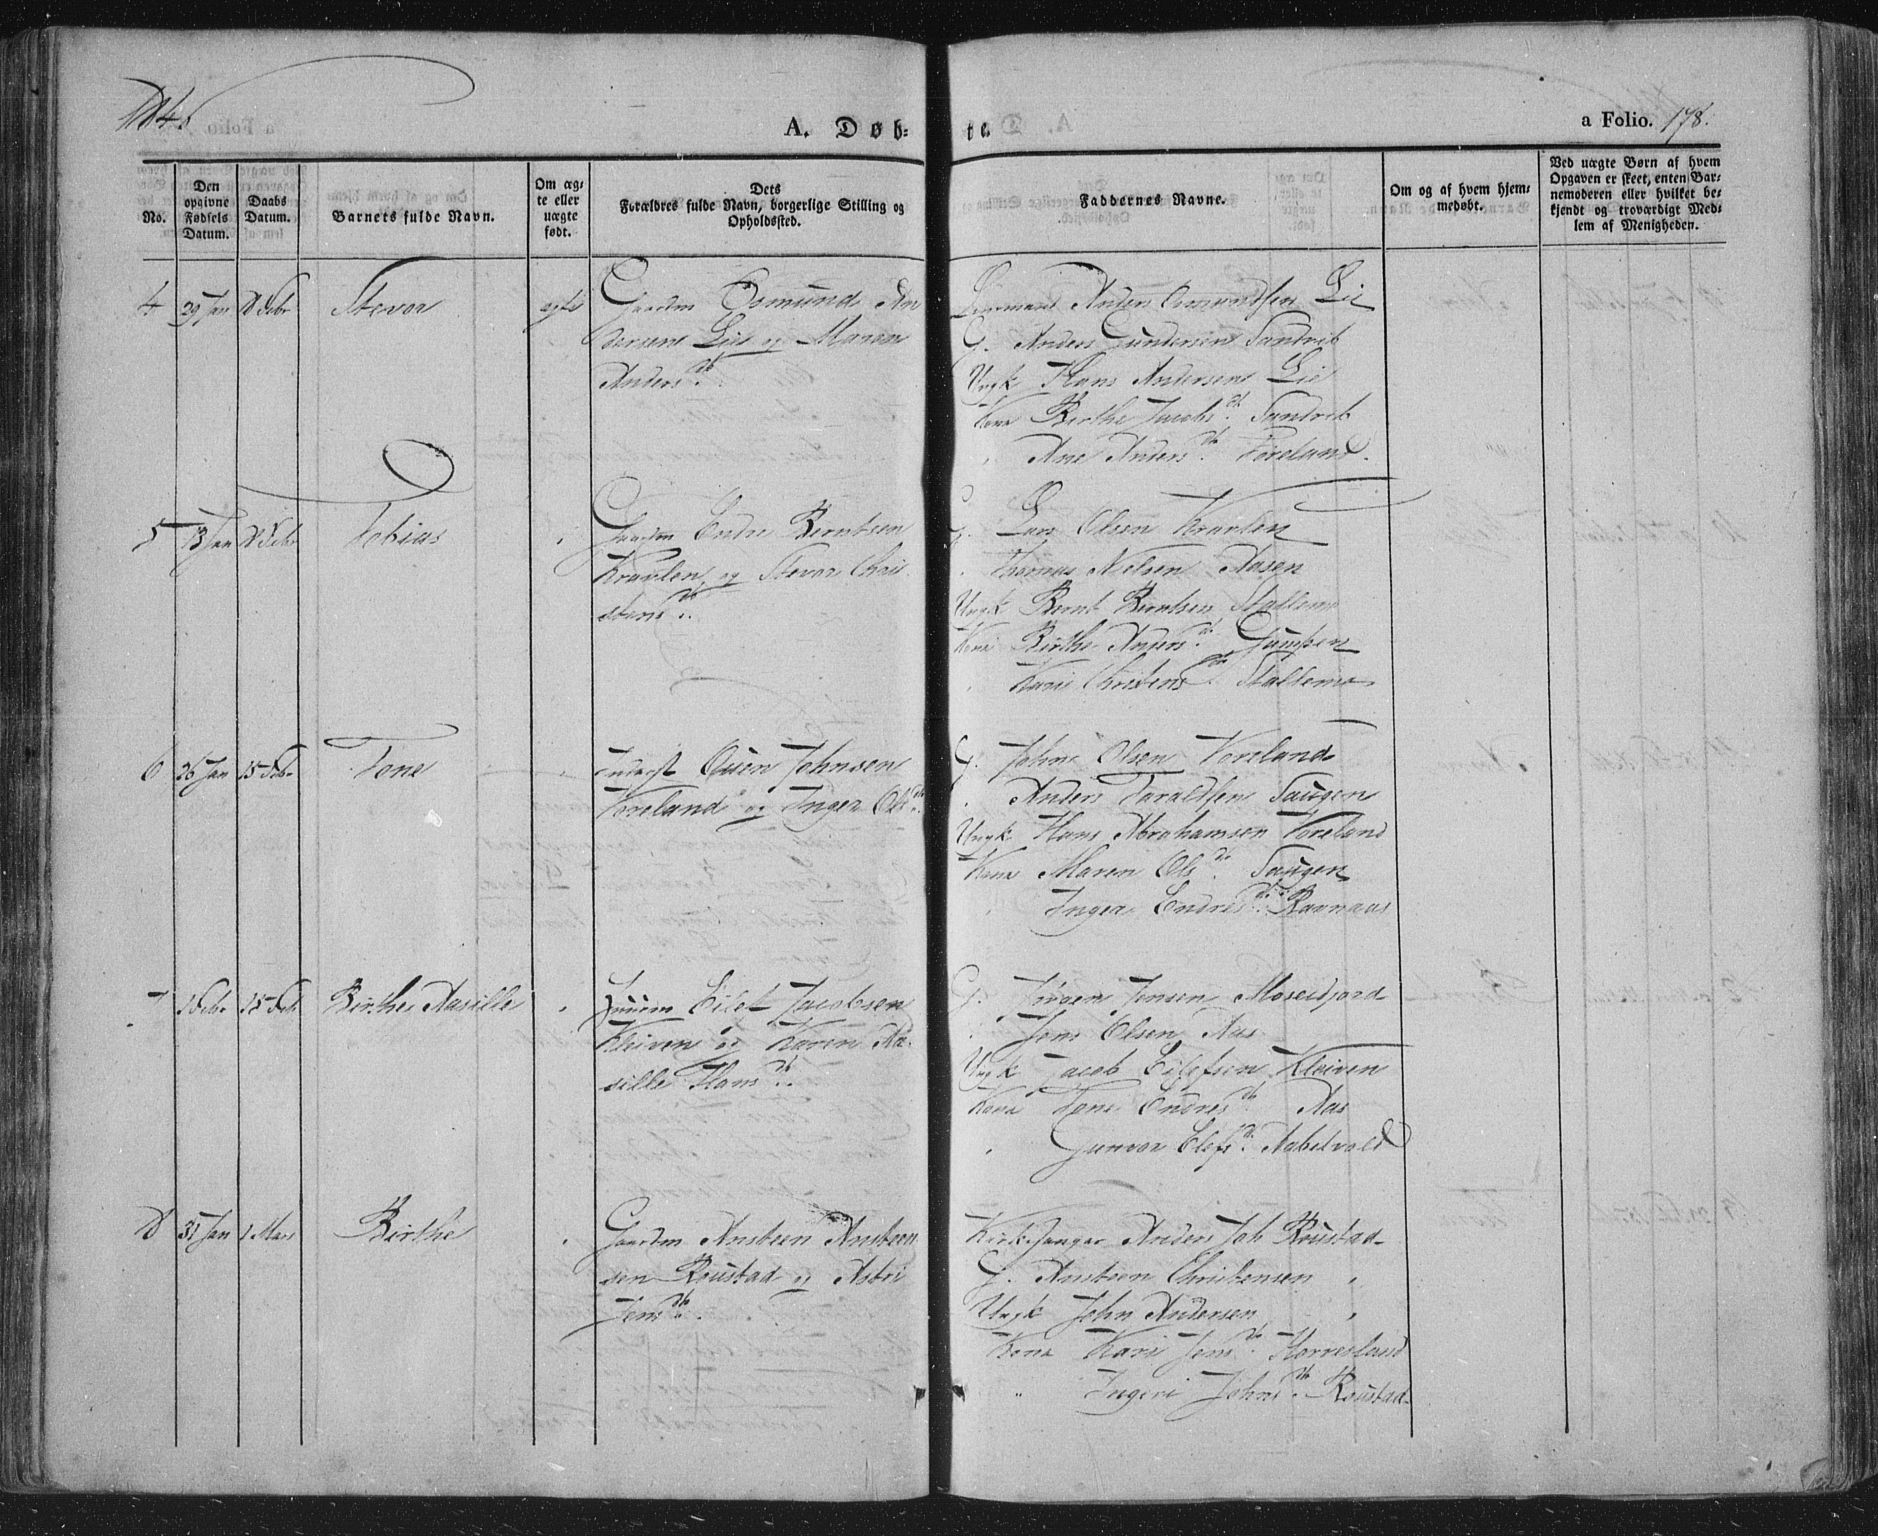 1846
A. Døb-
te.
a Folio. 178.
No.
Den opgivne Fødsels Datum.
Daabs Datum.
Barnets fulde Navn.
Om ægte eller uægte født.
Dets Forældres fulde Navn, borgerlige Stilling og Opholdssted.
Faddernes Navne.
Om og af hvem hjemmedøbt.
Ved uægte Børn af hvem Opgaven er skeet, enten Barnemoderen eller hvilket bekjendt og troværdigt Medlem af Menigheden.
4 29 Jan 8 Febr Stevor ægte Gaardm Osmund An
dersen Lie og Maren
Anders dr.
Leensmand Anders Osmundsen Lie
G. Anders Gundersen Sandvik
Ungk Hans Andersen Lie
Kone Birthe Jacobs dr. Sandvik
" Ane Anders dr. Voreland.
5 13 Jan 8 Febr Tobias " Gaardm Endre Berntsen
Kraulen og Stevor Chri
stens dr.
G. Lars Olsen Kraulen
" Thomas Nielsen Aasen
Ungk Bernt Berntsen Stallemo
Kone Birthe Anders dr.
" Kari Christens dr. Stallemo
6 26 Jan 15 Febr Tone " Inderst Ouen Johnsen
Voreland og Inger Ols dr.
G. John Olsen Voreland
" Anders Taraldsen Saugen
Ungk Hans Abrahamsen Voreland
Kone Maren Ols dr. Saugen
" Inger Endres dr. Ravnaas
7 1 Febr 15 Feb Birthe Aasille " Eilef Jacobsen
Kleiven og Karen Aa-
sille Hans dr.
G. Jørgen Jensen Moseidjord
" Jens Olsen Aas
Ungk Jacob Eilefsen Kleiven
Kone Tone Endres dr. Aas
" Gunvor Elefs dr. Aabelvold
8 31 Jan 1 Mars Birthe " Gaardm Ansteen Ansteen
sen Roustad og Astri
Jens dr.
Kirkesanger Anders Joh Roustad
G. Ansteen Christensen "
Ungk John Andersen "
Kone Kari Jens dr. Horresland
" Ingeri Johns dr. Roustad